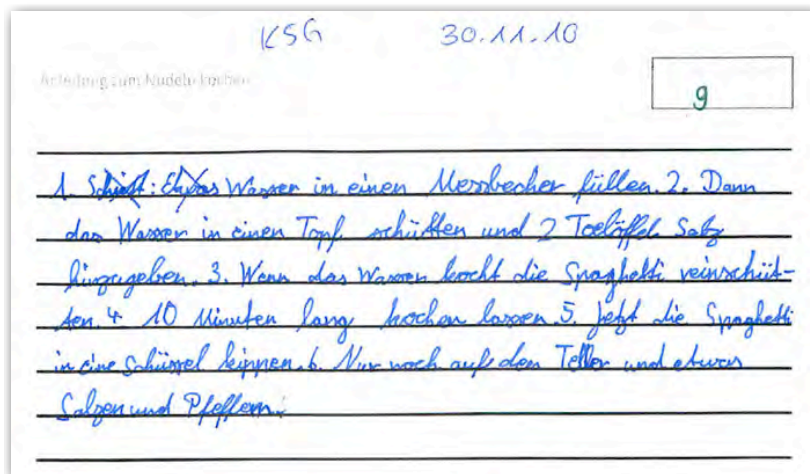 KSG 30.11.10
Anleitung zum Nudeln kochen
9
1. Schritt: Etwas Wasser in einen Messbecher füllen. 2. Dann
das Wasser in einen Topf schütten und 2 Teelöffel Salz
hinzugeben. 3. Wenn das Wasser kocht die Spaghetti reinschüt-
ten. 4. 10 Minuten lang kochen lassen. 5. Jetzt die Spaghetti
in eine Schüssel kippen. 6. Nur noch auf den Teller und etwas
Salzen und Pfeffern.